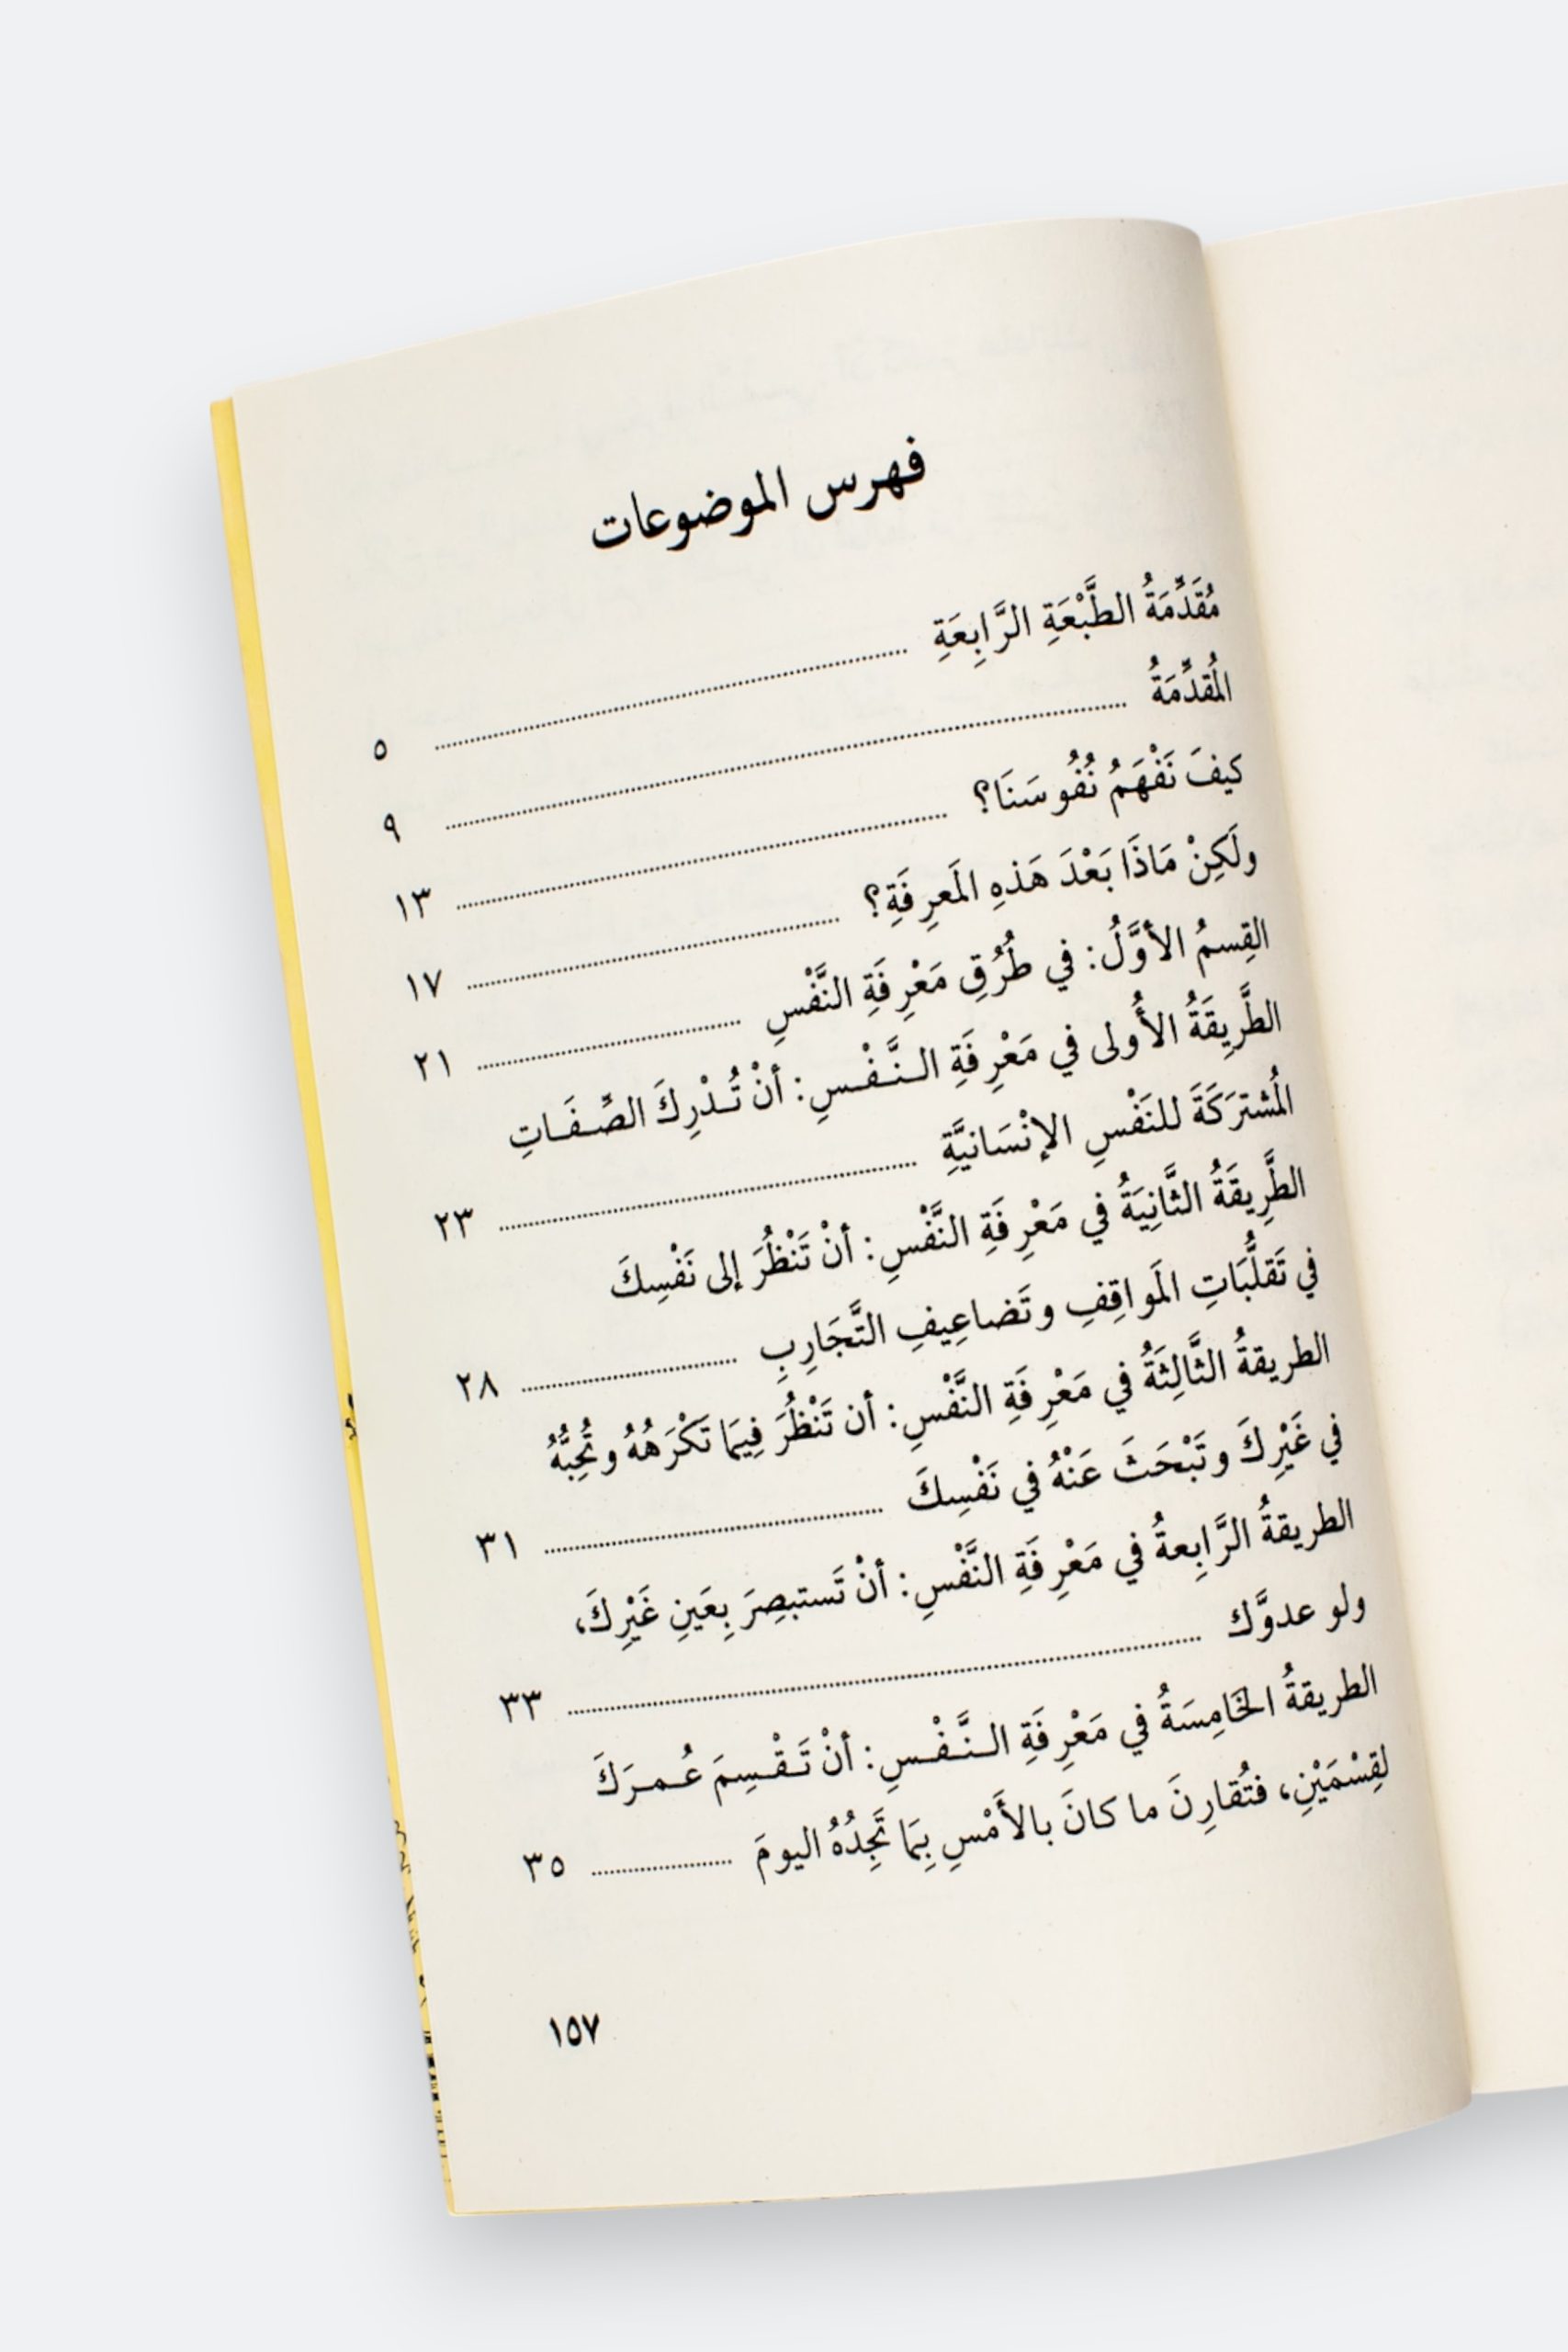 فهرس الموضوعات
مُقَدِّمَةُ الطَّبْعَةِ الرَّابِعَةِ ........ ٥
المُقدِّمَةُ ........ ٩
كيفَ نَفْهَمُ نُفُوسَنَا؟ ........ ١٣
ولَكِنْ مَاذَا بَعْدَ هَذهِ المَعرِفَةِ؟ ........ ١٧
القِسمُ الأوَّلُ: في طُرُقِ مَعْرِفَةِ النَّفْسِ ........ ٢١
الطَّرِيقَةُ الأُولى في مَعْرِفَةِ الـنَّـفْـسِ: أنْ تُـدْرِكَ الصِّـفَـاتِ
المُشترَكَةَ للنَفْسِ الإنْسَانيَّةِ ........ ٢٣
الطَّرِيقَةُ الثَّانِيَةُ في مَعْرِفَةِ النَّفْسِ: أنْ تَنْظُرَ إلى نَفْسِكَ
في تَقلُّبَاتِ المَواقِفِ وتَضاعِيفِ التَّجَارِبِ ........ ٢٨
الطريقةُ الثَّالِثَةُ في مَعْرِفَةِ النَّفْسِ: أن تَنْظُرَ فِيمَا تَكْرَهُهُ وتُحِبُّهُ
في غَيْرِكَ وتَبْحَثَ عَنْهُ في نَفْسِكَ ........ ٣١
الطريقةُ الرَّابِعةُ في مَعْرِفَةِ النَّفْسِ: أنْ تَستبصِرَ بِعَينِ غَيْرِكَ،
ولو عدوَّك ........ ٣٣
الطريقةُ الخَامِسَةُ في مَعْرِفَةِ الـنَّـفْـسِ: أنْ تَـقْـسِمَ عُـمـرَكَ
لقِسْمَيْنِ، فتُقارِنَ ما كانَ بالأَمْسِ بِمَا تَجِدُهُ اليومَ ........ ٣٥
١٥٧